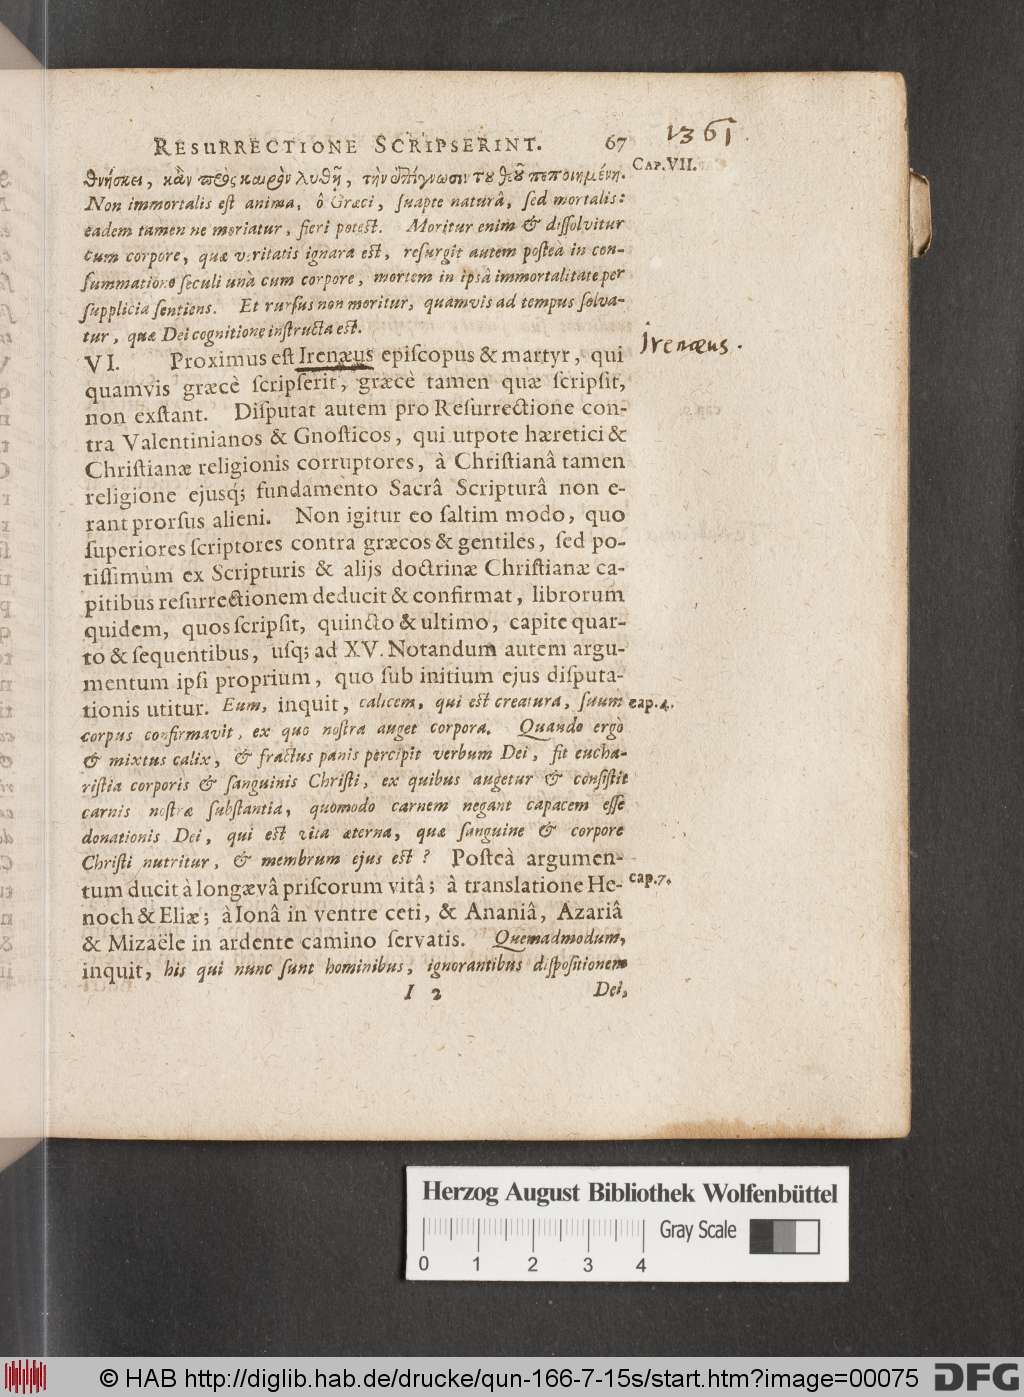 RESURRECTIONE SCRIPSERINT. 67
1361
CAP. VII.
θνήσκει, κἂν πρὸς καιρὸν λυθῆ, τὴν ἐπίγνωσιν τοῦ θεοῦ πεποιημένη.
Non immortalis est anima, ô Græci, suapte naturâ, sed mortalis:
eadem tamen ne moriatur, fieri potest. Moritur enim & dissolvitur
cum corpore, quæ veritatis ignara est, resurgit autem posteà in con-
summatione seculi unà cum corpore, mortem in ipsâ immortalitate per
supplicia sentiens. Et rursus non moritur, quamvis ad tempus solva-
tur, quæ Dei cognitione instructa est.
VI. Proximus est Irenæus episcopus & martyr, qui
Irenæus.
quamvis græcè scripserit, græcè tamen quæ scripsit,
non exstant. Disputat autem pro Resurrectione con-
tra Valentinianos & Gnosticos, qui utpote hæretici &
Christianæ religionis corruptores, à Christianâ tamen
religione ejusq; fundamento Sacrâ Scripturâ non e-
rant prorsus alieni. Non igitur eo saltim modo, quo
superiores scriptores contra græcos & gentiles, sed po-
tissimùm ex Scripturis & alijs doctrinæ Christianæ ca-
pitibus resurrectionem deducit & confirmat, librorum
quidem, quos scripsit, quincto & ultimo, capite quar-
to & sequentibus, usq; ad XV. Notandum autem argu-
mentum ipsi proprium, quo sub initium ejus disputa-
tionis utitur. Eum, inquit, calicem, qui est creatura, suum
cap. 4.
corpus confirmavit, ex quo nostra auget corpora. Quando ergò
& mixtus calix, & fractus panis percipit verbum Dei, fit eucha-
ristia corporis & sanguinis Christi, ex quibus augetur & consistit
carnis nostræ substantia, quomodo carnem negant capacem esse
donationis Dei, qui est vita æterna, quæ sanguine & corpore
Christi nutritur, & membrum ejus est? Posteà argumen-
tum ducit à longævâ priscorum vitâ; à translatione He-
cap. 7.
noch & Eliæ; à Ionâ in ventre ceti, & Ananiâ, Azariâ
& Mizaële in ardente camino servatis. Quemadmodum,
inquit, his qui nunc sunt hominibus, ignorantibus dispositionem
I 2 Dei,
Herzog August Bibliothek Wolfenbüttel
Gray Scale
0 1 2 3 4
© HAB http://diglib.hab.de/drucke/qun-166-7-15s/start.htm?image=00075
DFG